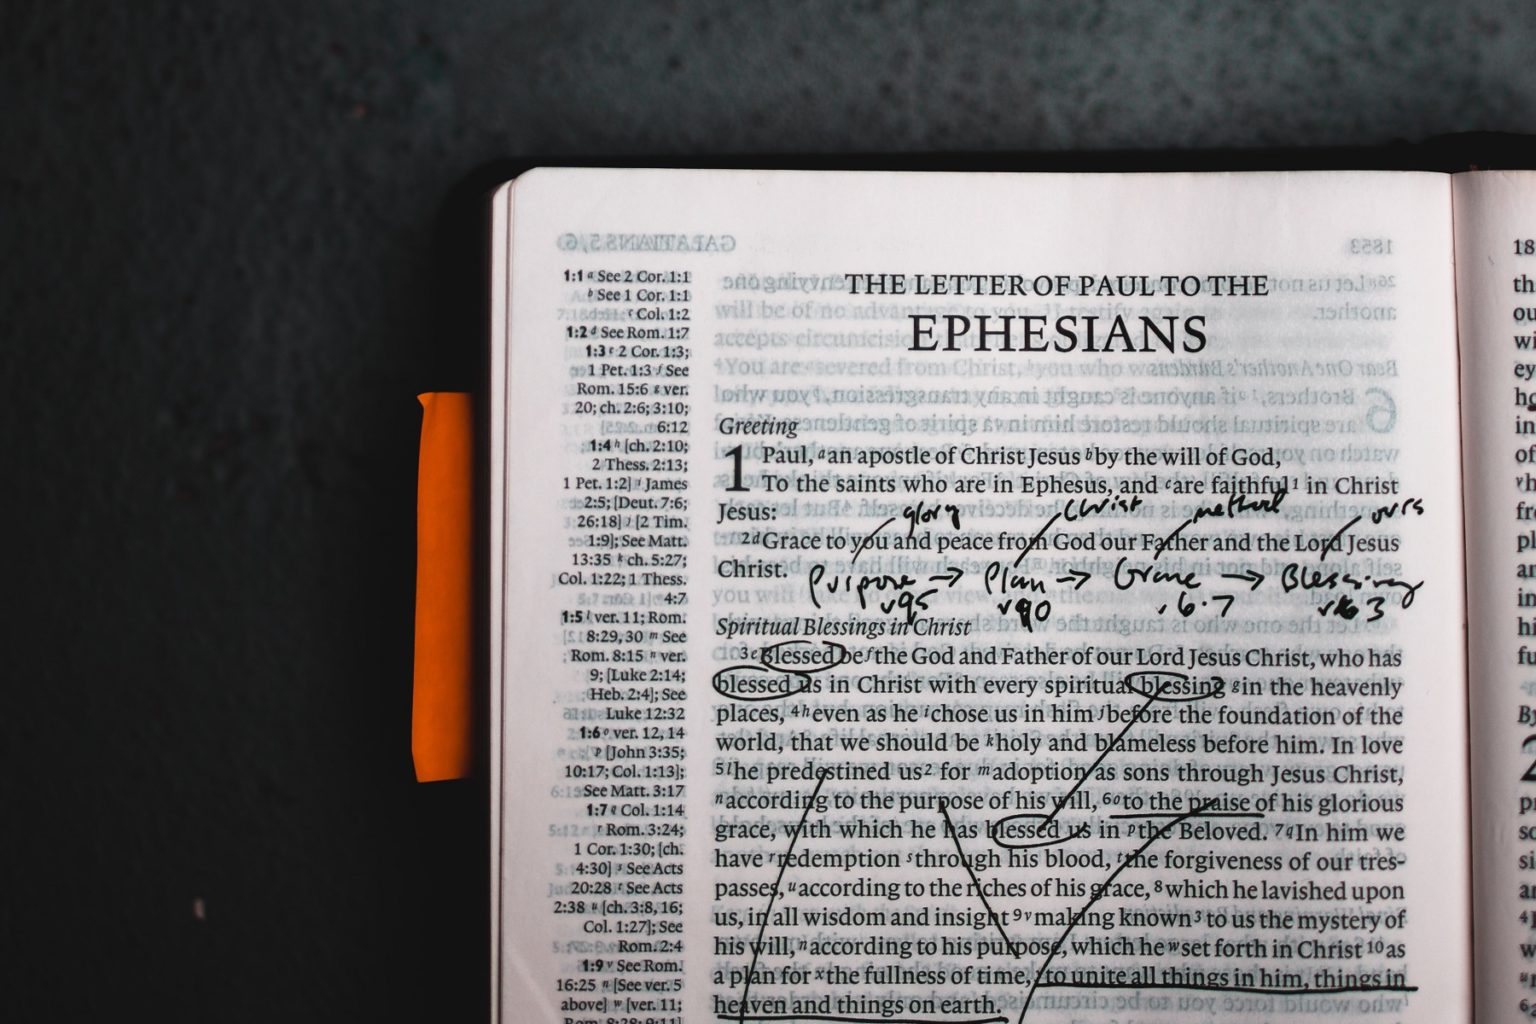 1:1 a See 2 Cor. 1:1
b See 1 Cor. 1:1
c Col. 1:2
1:2 d See Rom. 1:7
1:3 e 2 Cor. 1:3;
1 Pet. 1:3 f See
Rom. 15:6 g ver.
20; ch. 2:6; 3:10;
6:12
1:4 h [ch. 2:10;
2 Thess. 2:13;
1 Pet. 1:2] i James
2:5; [Deut. 7:6;
26:18] j [2 Tim.
1:9]; See Matt.
13:35 k ch. 5:27;
Col. 1:22; 1 Thess.
4:7
1:5 l ver. 11; Rom.
8:29, 30 m See
Rom. 8:15 n ver.
9; [Luke 2:14;
Heb. 2:4]; See
Luke 12:32
1:6 o ver. 12, 14
p [John 3:35;
10:17; Col. 1:13];
See Matt. 3:17
1:7 q Col. 1:14
r Rom. 3:24;
1 Cor. 1:30; [ch.
4:30] s See Acts
20:28 t See Acts
2:38 u [ch. 3:8, 16;
Col. 1:27]; See
Rom. 2:4
1:9 v See Rom.
16:25 n [See ver. 5
above] w [ver. 11;
Rom. 8:28; 9:11]
THE LETTER OF PAUL TO THE
EPHESIANS
Greeting
1 Paul, a an apostle of Christ Jesus b by the will of God,
To the saints who are in Ephesus, and c are faithful 1 in Christ
Jesus:
glory Christ method ours
2 d Grace to you and peace from God our Father and the Lord Jesus
Christ.
Purpose → Plan → Grace → Blessing
v6-7
Spiritual Blessings in Christ
3 e Blessed be f the God and Father of our Lord Jesus Christ, who has
blessed us in Christ with every spiritual blessing g in the heavenly
places, 4 h even as he i chose us in him j before the foundation of the
world, that we should be k holy and blameless before him. In love
5 l he predestined us 2 for m adoption as sons through Jesus Christ,
n according to the purpose of his will, 6 o to the praise of his glorious
grace, with which he has blessed us in p the Beloved. 7 q In him we
have r redemption s through his blood, t the forgiveness of our tres-
passes, u according to the riches of his grace, 8 which he lavished upon
us, in all wisdom and insight 9 v making known 3 to us the mystery of
his will, n according to his purpose, which he w set forth in Christ 10 as
a plan for x the fullness of time, to unite all things in him, things in
heaven and things on earth.